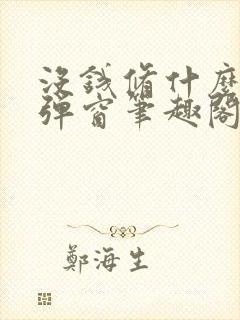 沒錢脩什麽
彈窗筆趣閣
鄭海生